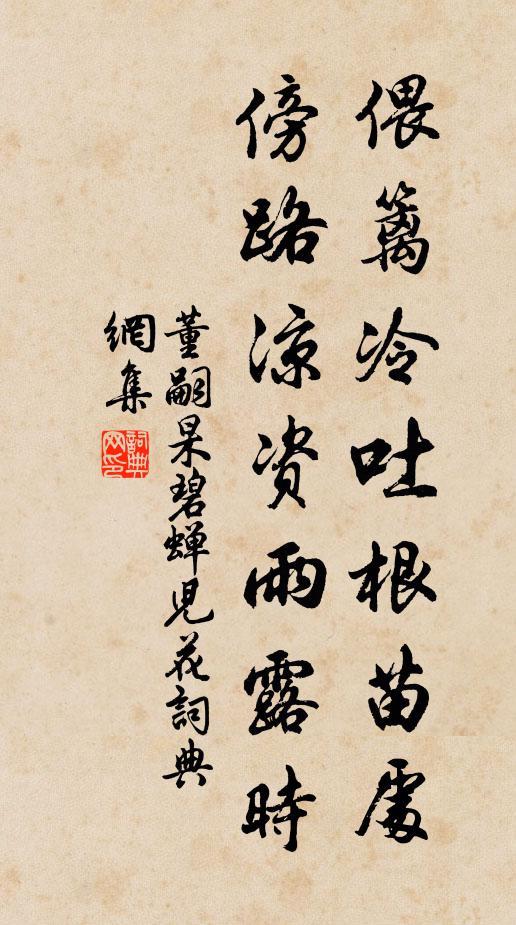 偎籬冷吐根苗處
傍路凉資雨露時
董嗣杲碧蟬児花詞典
網集
詞典
网印